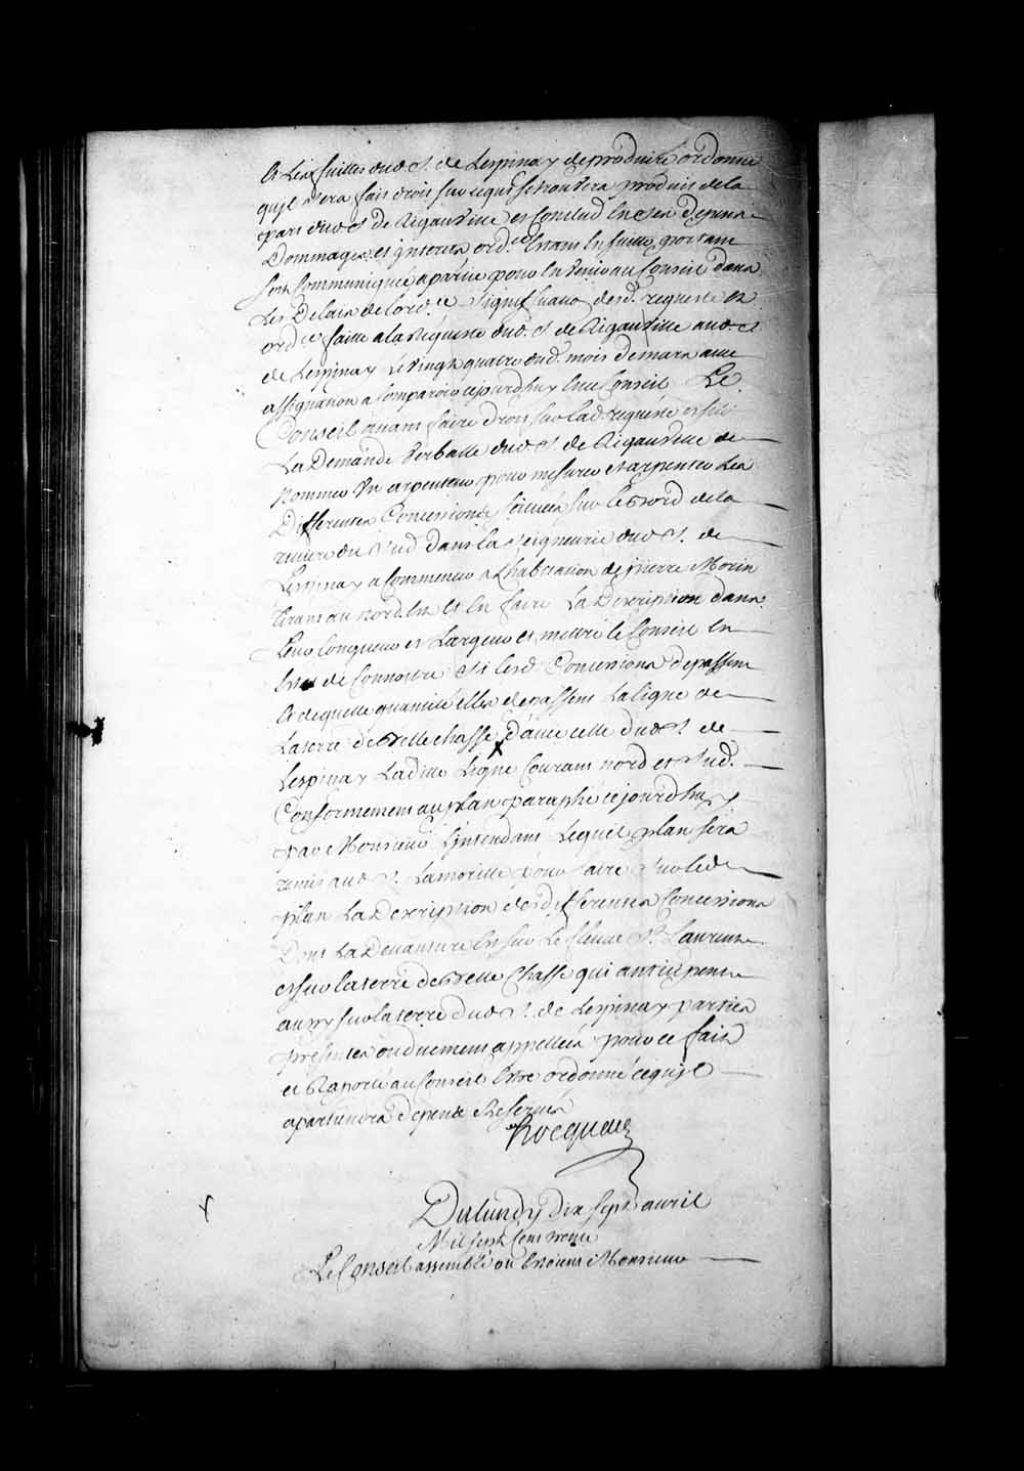 Et les suittes dud. S. de Lespinay de produire ordonne
quil sera fait droit sur ce qui se trouvera produit de la
part dud. S. de Rigauville et conclud en ses depens
Dommages et jnterets ord.ce Estant En suitte portant
soit communiqué a partie pour En venir au Conseil dans
Les Delais de lord.ce Signiffication desd. requeste et
ord.ce faitte a la Requeste dud. S. de Rigauville aud. S.
de Lespinay Le vingt quatre dud. mois de mars avec
assignation a Comparoir cejourdhuy En ce Conseil Le
Conseil avant faire droit sur lad. requeste et sur
La Demande verballe dud. S. de Rigauville de
Nommer Un arpenteur pour mesurer et arpenter Les
Differentes Concessions scituées sur le Bord de la
riviere du sud dans la seigneurie dud. S. de
Lespinay a Commencer a Lhabitation de pierre Morin
tirant au Nord Est et En faire La Description dans
Leur longueur et Largeur et mettre le Conseil En
Estat de Connoitre si lesd. Concessions depassent
Et de quelle quantité Elles depassent La ligne de
La terre de Bellechasse d'avec celle dud. S. de
Lespinay Ladite Ligne Courant nord et sud.
Conformement au plan paraphé cejourdhuy
par Monsieur Lintendant Lequel plan sera
remis aud. S. Lamorille pour faire sur led.
plan La Description desd. differentes Concessions
Dont La Devanture Est sur Le fleuve St. Laurent
et sur la terre de Belle Chasse qui anticipent
aussy sur la terre dud. S. de Lespinay parties
presentes ou duement appellées pour ce fait
et Raporté au Conseil Estre ordonné ce quil
apartiendra depens Reservés
Hocquart
Du lundy dix sept avril
Mil sept cent trente
Le Conseil assemblé ou Estoient Monsieur